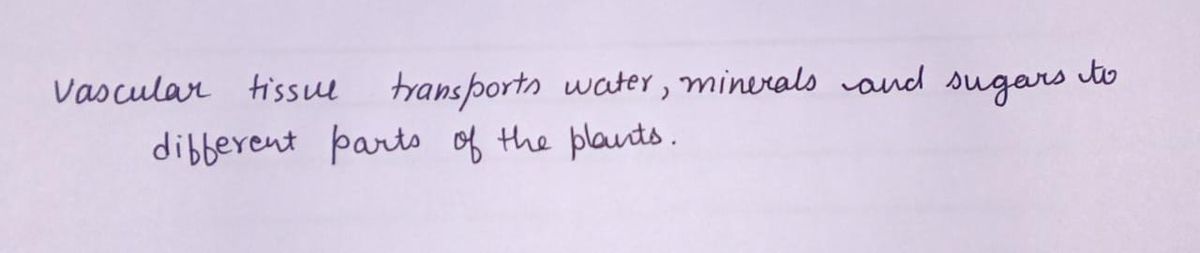 Vascular tissue transports water, minerals and sugars to
different parts of the plants.